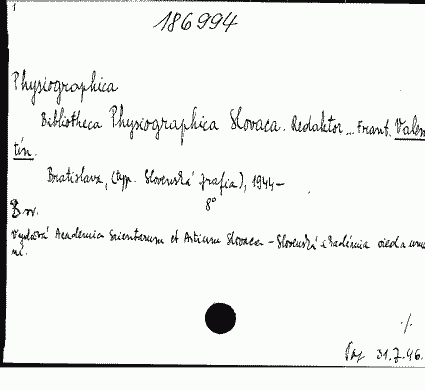 1
186994
Physiographica
Bibliotheca Physiographica Slovaca. Redaktor ... Frant. Valen-
tín.
Bratislava, (typ. Slovenská grafia), 1944 –
8°
Vydává Academia Scientiarum et Artium Slovaca – Slovenská akadémia vied a umе-
ní.
./.
31.7.46.